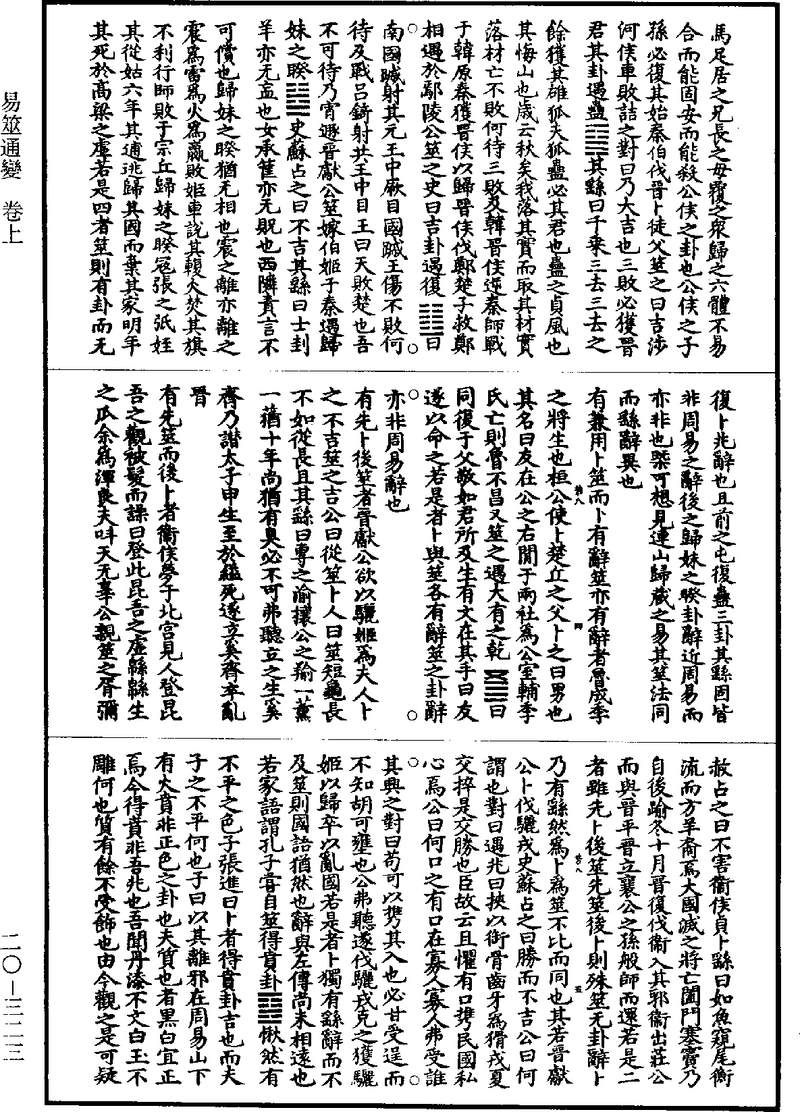 馬足居之兄長之母覆之衆歸之六體不易
合而能固安而能殺公侯之卦也公侯之子
孫必復其始秦伯伐晉卜徒父筮之曰吉涉
河侯車敗詰之對曰乃大吉也三敗必獲晉
君其卦遇蠱䷑其繇曰千乘三去三去之
餘獲其雄狐夫狐蠱必其君也蠱之貞風也
其悔山也歲云秋矣我落其實而取其材實
落材亡不敗何待三敗及韓晉侯逆秦師戰
于韓原秦獲晉侯以歸晉侯伐鄭楚子救鄭
相遇於鄢陵公筮之史曰吉卦遇復䷗曰
南國䠞射其元王中厥目國䠞王傷不敗何
待及戰呂錡射共王中目王曰天敗楚也吾
不可待乃宵遯晉獻公筮嫁伯姬于秦遇歸
妹之睽䷥史蘇占之曰不吉其繇曰士刲
羊亦无衁也女承筐亦无貺也西隣責言不
可償也歸妹之睽猶无相也震之離亦離之
震爲雷爲火爲嬴敗姬車說其輹火焚其旗
不利行師敗于宗丘歸妹之睽寇張之弧姪
其從姑六年其逋逃歸其國而棄其家明年
其死於高梁之虛若是四者筮則有卦而无
復卜兆辭也且前之屯復蠱三卦其繇固皆
非周易之辭後之歸妹之睽卦辭近周易而
亦非也槩可想見連山歸藏之易其筮法同
而繇辭異也
有兼用卜筮而卜有辭筮亦有辭者魯成季
之將生也桓公使卜楚丘之父卜之曰男也
其名曰友在公之右間于兩社爲公室輔季
氏亡則魯不昌又筮之遇大有之乾䷍曰
同復于父敬如君所及生有文在其手曰友
遂以命之若是者卜與筮各有辭筮之卦辭
亦非周易辭也
有先卜後筮者晉獻公欲以驪姬爲夫人卜
之不吉筮之吉公曰從筮卜人曰筮短龜長
不如從長且其繇曰專之渝攘公之羭一薰
一蕕十年尚猶有臭必不可弗聽立之生奚
齊乃譖太子申生至於縊死遂立奚齊卒亂
晉
有先筮而後卜者衞侯夢于北宮見人登昆
吾之觀被髮而譟曰登此昆吾之虛緜緜生
之瓜余爲渾良夫叫天无辜公親筮之胥彌
赦占之曰不害衞侯貞卜繇曰如魚竀尾衡
流而方羊裔焉大國滅之將亡闔門塞竇乃
自後踰冬十月晉復伐衞入其郛衞出莊公
而與晉平晉立襄公之孫般師而還若是二
者雖先卜後筮先筮後卜則殊筮无卦辭卜
乃有繇然爲卜爲筮不比而同也其若晉獻
公卜伐驪戎史蘇占之曰勝而不吉公曰何
謂也對曰遇兆曰挾以銜骨齒牙爲猾戎夏
交捽是交勝也臣故云且懼有口㩗民國私
心焉公曰何口之有口在寡人寡人弗受誰
其興之對曰苟可以㩗其入也必甘受逞而
不知胡可壅也公弗聽遂伐驪戎克之獲驪
姬以歸卒以亂國若是者卜獨有繇辭而不
及筮則國語猶然也辭與左傳尚未相遠也
若家語謂孔子嘗自筮得賁卦䷕愀然有
不平之色子張進曰卜者得賁卦吉也而夫
子之不平何也子曰以其離邪在周易山下
有火賁非正色之卦也夫質也者黑白宜正
焉今得賁非吾兆也吾聞丹漆不文白玉不
雕何也質有餘不受飾也由今觀之是可疑
易筮通變 卷上
二〇—三二三